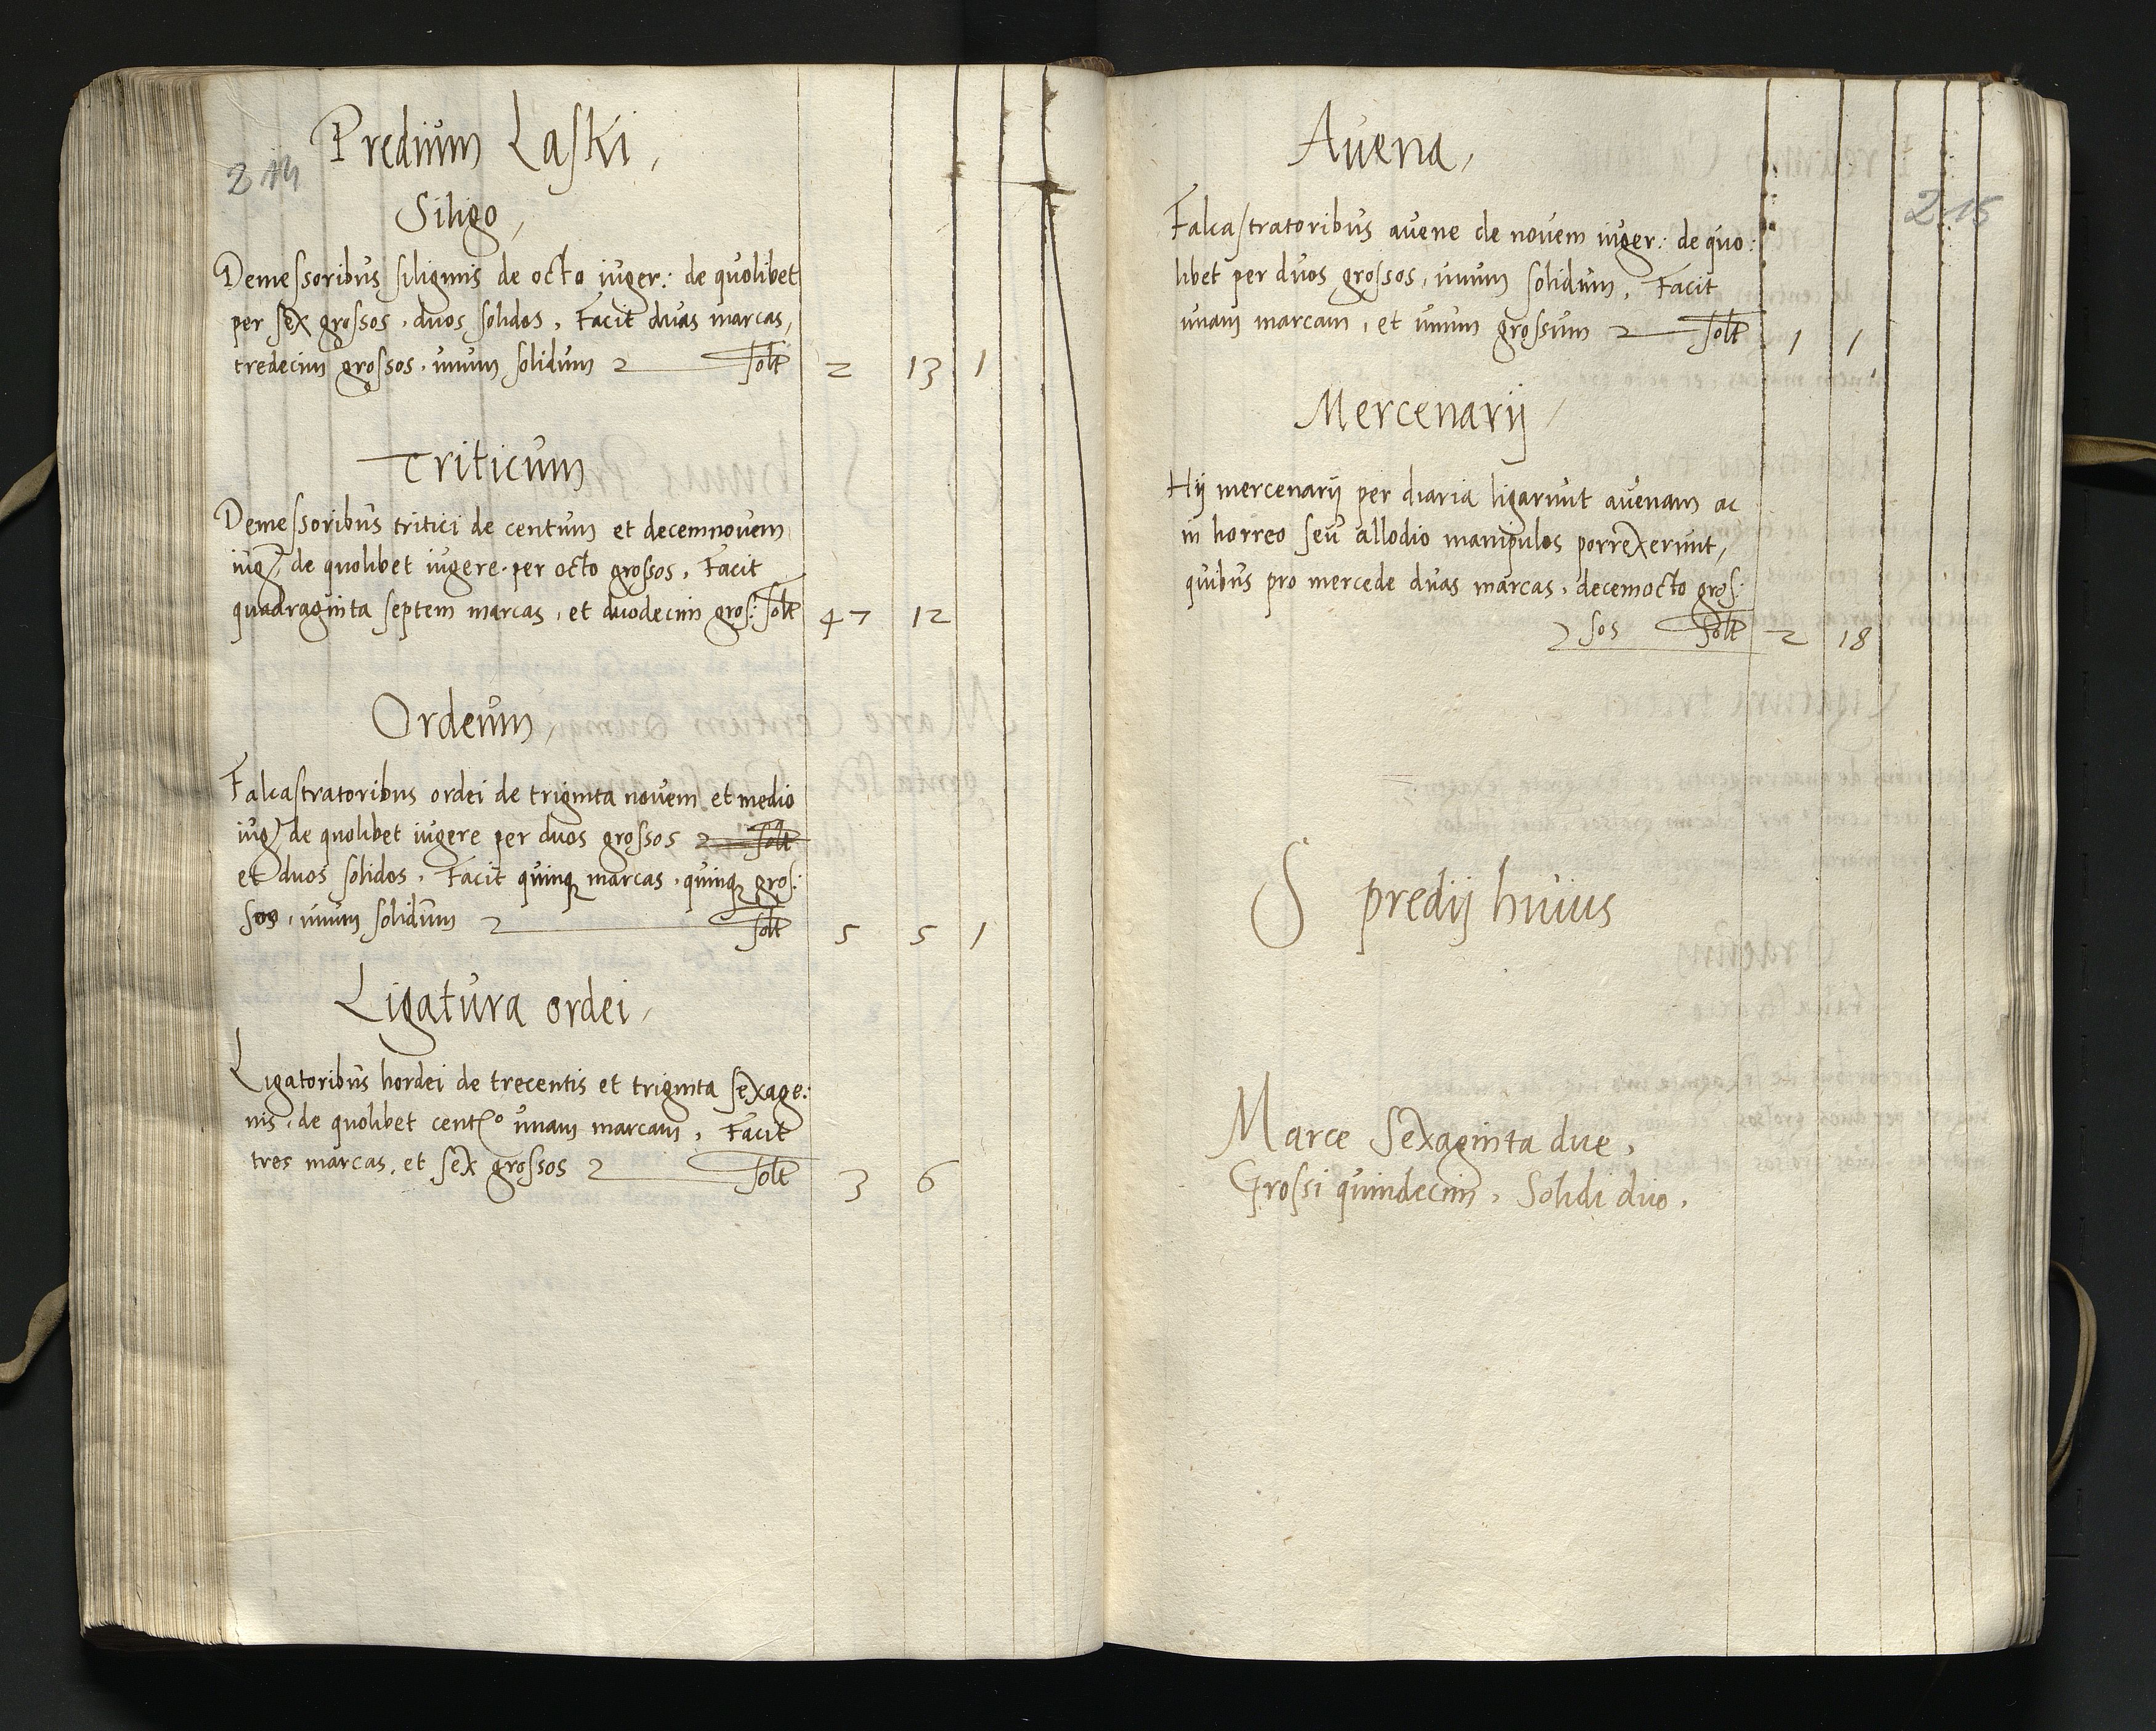 214
Predium Laski,
Siligo,
Demessoribus siliginis de octo iuger: de quolibet
per sex grossos, duos solidos, Facit duas marcas,
tredecim grossos, unum solidum solt 2 13 1
Triticum
Demessoribus tritici de centum et decemnovem
iug, de quolibet iugere per octo grossos, Facit
quadraginta septem marcas, et duodecim gros: solt 47 12
Ordeum,
Falcastratoribus ordei de triginta novem et medio
iug, de quolibet iugere per duos grossos solt
et duos solidos, Facit quinq marcas, quinq gros:
sos, unum solidum solt 5 5 1
Ligatura ordei,
Ligatoribus hordei de trecentis et triginta sexage:
nis, de quolibet cento unam marcam, Facit
tres marcas, et sex grossos solt 3 6
215
Avena,
Falcastratoribus avene de novem iuger: de quo:
libet per duos grossos, unum solidum, Facit
unam marcam, et unum grossum solt 1 1
Mercenarij
Hij mercenarij per diaria ligarunt avenam ac
in horreo seu allodio manipulos porrexerunt,
quibus pro mercede duas marcas, decemocto gros:
sos solt 2 18
S predij huius
Marce Sexaginta due,
Grossi quindecim, Solidi duo.